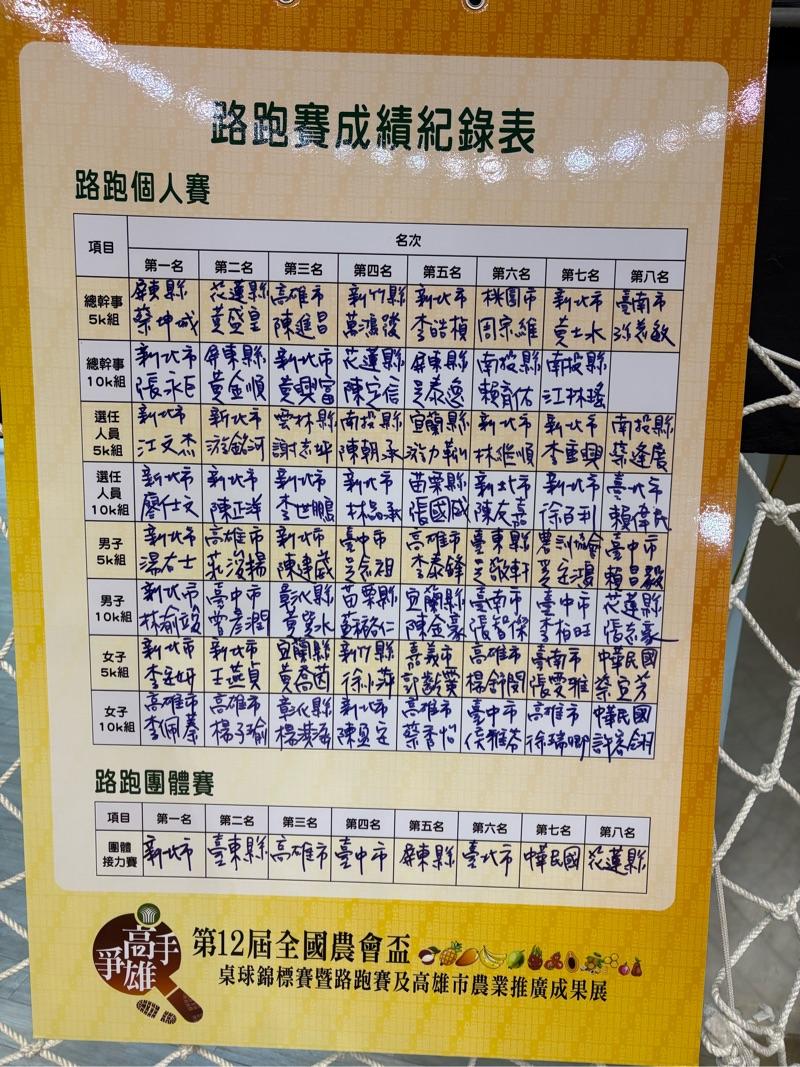 路跑賽成績紀錄表
路跑個人賽
項目
名次
第一名 第二名 第三名 第四名 第五名 第六名 第七名 第八名
總幹事 5k組
屏東縣 花蓮縣 高雄市 新竹縣 新北市 桃園市 新北市 臺南市
蔡坤城 黃盛皇 陳進昌 萬鴻陵 李皓楨 周宗維 黃士水
總幹事 10k組
新北市 屏東縣 新北市 花蓮縣 屏東縣 南投縣 南投縣
張永巨 黃金順 黃興富 陳定信 吳泰逸 賴育佑 江林瑤
選任人員 5k組
新北市 新北市 雲林縣 南投縣 宜蘭縣 新北市 新北市 南投縣
江文杰 游銘河 謝志坪 陳朝承 林繼順 李重興 蔡逢展
選任人員 10k組
新北市 新北市 新北市 新北市 苗栗縣 新北市 新北市 臺北市
廖仕文 陳正洋 李世鵬 張國威 陳友嘉 徐百利 賴偉民
男子 5k組
新北市 高雄市 新北市 臺中市 高雄市 臺東縣 臺中市
湯右士 莊浚揚 陳建威 吳念祖 李泰鋒 吳敬軒 賴昌毅
男子 10k組
新北市 臺中市 彰化縣 苗栗縣 宜蘭縣 臺南市 臺中市 花蓮縣
曾彥潤 陳金豪 張智傑 李柏旺 張志豪
女子 5k組
新北市 新北市 宜蘭縣 新竹縣 嘉義市 高雄市 臺南市 中華民國
王燕貞 黃喬茵 徐小萍 彭齡葉 楊舒閔 張雯雅 蔡宜芳
女子 10k組
高雄市 高雄市 彰化縣 新北市 高雄市 臺中市 高雄市 中華民國
李佩蓁 楊子瑜 陳盈安 蔡秀怡 侯雅芬 徐瑞卿
路跑團體賽
項目 第一名 第二名 第三名 第四名 第五名 第六名 第七名 第八名
團體接力賽 新北市 臺東縣 高雄市 臺中市 屏東縣 臺北市 中華民國 花蓮縣
高手爭雄
第12屆全國農會盃
桌球錦標賽暨路跑賽及高雄市農業推廣成果展